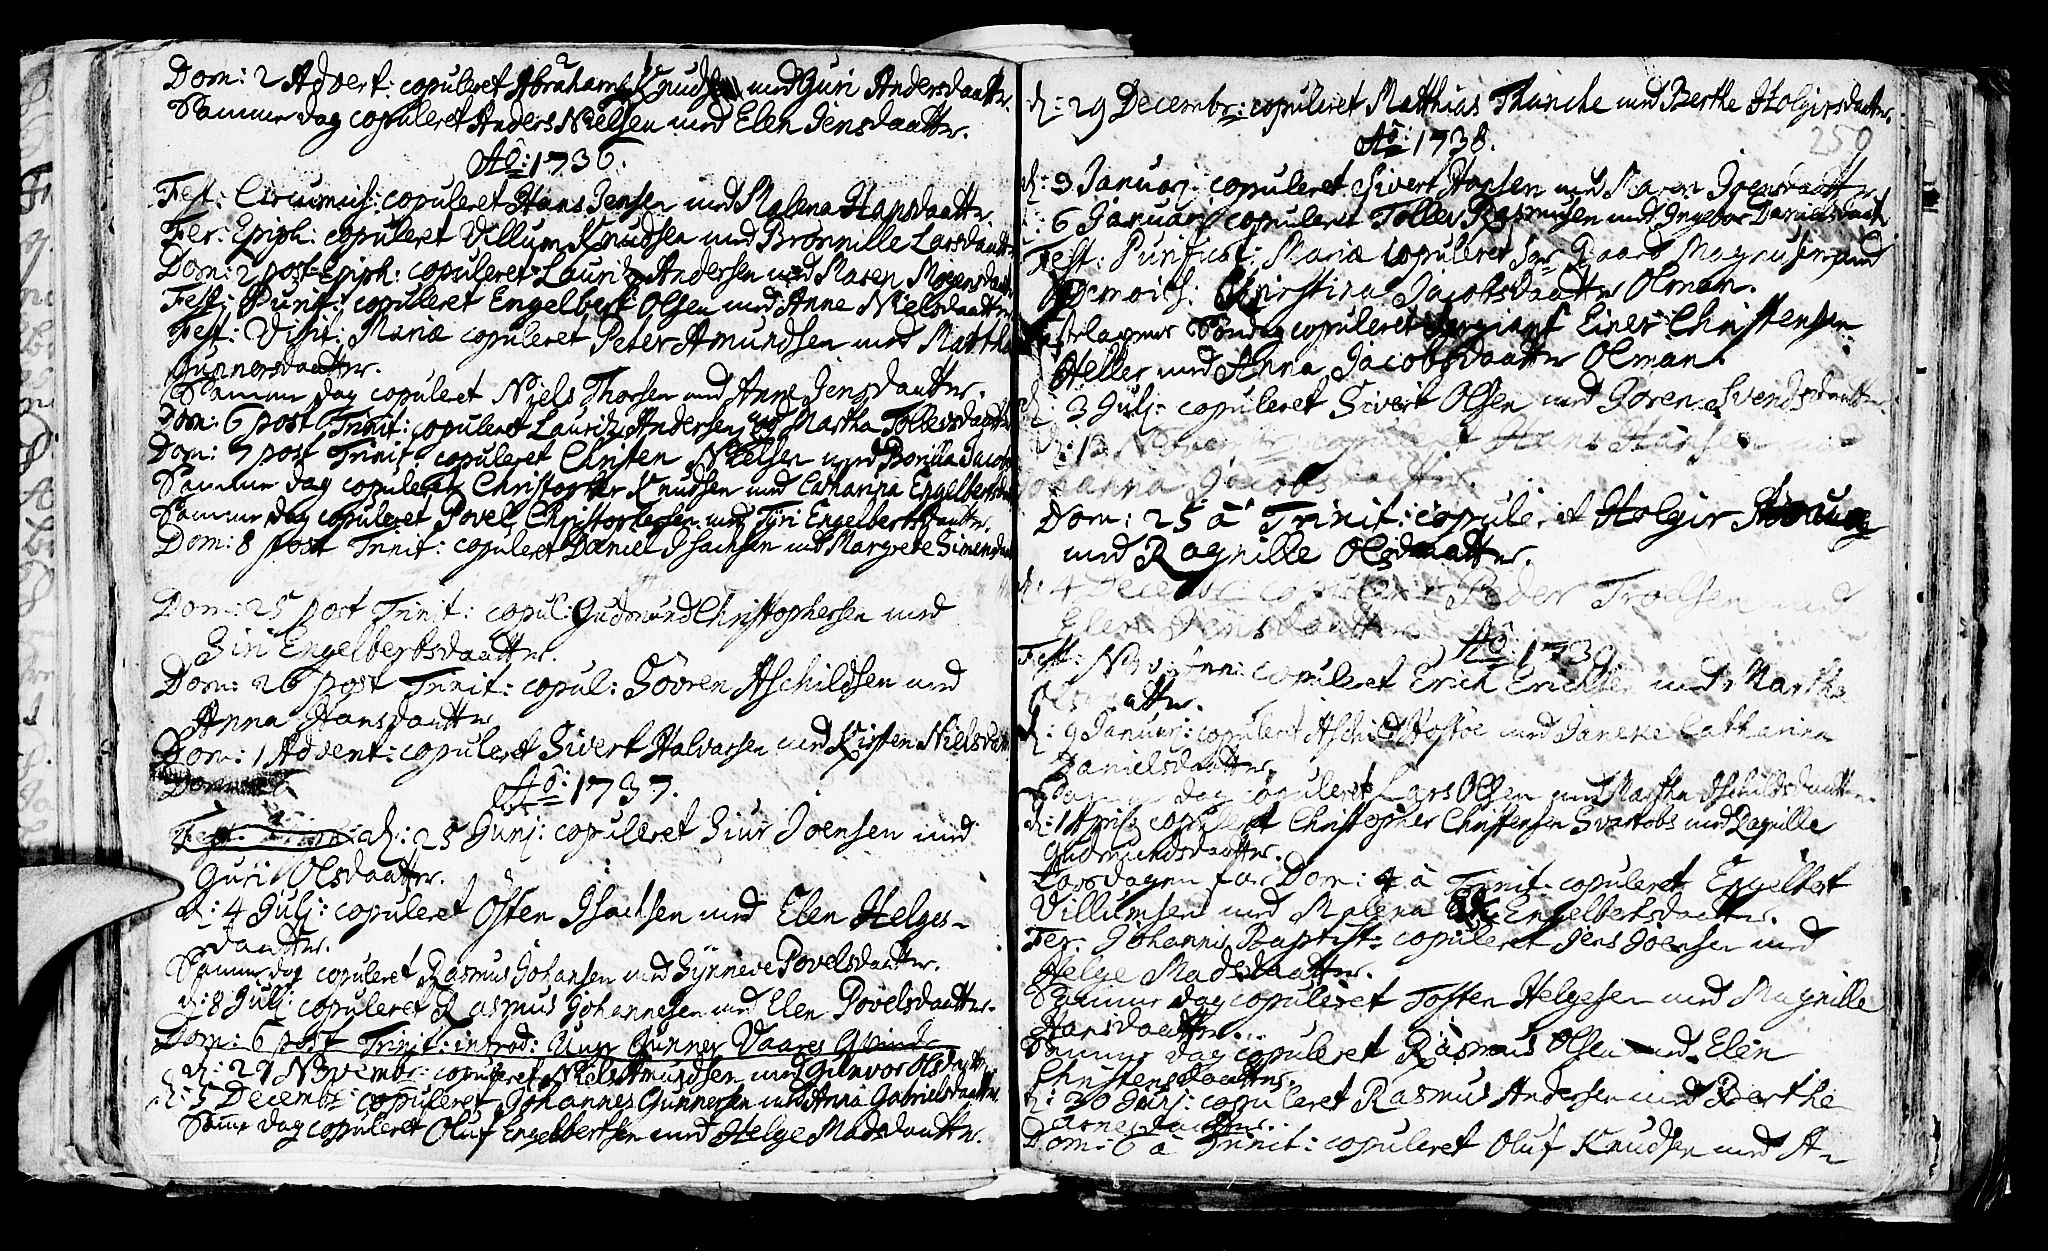 Dom: 2 Advert: copuleret Abraham Knudsen med Guri Andersdaatter.
Samme dag copuleret Anders Nielsen med Elen Jensdaatter.
Aō: 1736.
Fest: Circumcis: copuleret Hans Jensen med Malena Hansdaatter
Fer: Epiph: copuleret Villum Knudsen med Bronnille Larsdaatter
Dom: 2 post Epiph: copuleret Lauritz Andersen med Maren Mogensdaatt
Fest: Purif: copuleret Engelbert Olsen med Anne Nielsdaatter
Fest: Visit: Mariæ copuleret Peter Amundsen med Martha
Gunnersdaatter.
Samme dag copuleret Niels Thorsen med Anne Jensdaatter.
Dom: 6 post Trinit: copuleret Lauritz Andersen med Martha Tollevsdaatter
Dom: 7 post Trinit: copuleret Christen Nielsen med Borilla Jacobs
Samme dag copuleret Christopher Knudsen med Catharina Engelbertsdaa
Samme dag copuleret Povel Christophersen med Tÿri Engelbertsdaatter.
Dom: 8 post Trinit: copuleret Daniel Isachsen med Margrete Simensdaa
Dom: 25 post Trinit: copul: Gudmund Christophersen med
Siri Engelbertsdaatter.
Dom: 26 post Trinit: copul: Søvren Aschildsen med
Anna Hansdaatter
Dom: 1 Advent: copuleret Sivert Halvarsen med Kirsten Nielsdaa
Aō: 1737.
d: 25 Junj: copuleret Siur Joensen med
Guri Olsdaatter.
d: 4 Julj: copuleret Østen Isachsen med Elen Helges-
daatter.
Samme dag copuleret Rasmus Johansen med Synneve Povelsdaatter.
d: 8 Julj: copuleret Rasmus Johannesen med Elen Povelsdaatter.
Dom: 6 post Trinit: introd: Ung Gunner Vaares Qvinde
d: 27 Novembr: copuleret Niels Amundsen med Gunvor Olsdaatter
d: 5 Decembr: copuleret Johannes Gunnersen med Anna Gabrielsdaatter.
Samme dag copuleret Oluf Engelbertsen med Helge Madsdaatter.
d: 29 Decembr: copuleret Matthias Thusche med Berthe Holgersdaatter.
250
Aō: 1738.
d: 3 Januarj: copuleret Sivert Hansen med Maren Joensdaatter
d: 6 Januarj copuleret Tollev Rasmusen med Ingebor Danielsdaat
Fest: Purificat: Mariæ copuleret Sgr Gaard Magnusen med
Christina Jacobsdaatter Olman.
Fastelagens Søndag copuleret Sergiant Einer Christensen
Heller med Anna Jacobsdaatter Olman.
d: 3 Julj: copuleret Sivert Olsen med Goren Svendsdaatter.
d: 13 November copuleret Hans Hansen med
Johanna Jacobsdaatter.
Dom: 25 à Trinit: copuleret Holger
med Ragnille Olsdaatter.
d: 4 December copuleret Peder Troelsen med
Elen Jensdaatter
Aō: 1739
Fest: Novi Ann: copuleret Erich Erichsen med Marthe
Olsdaatter.
d: 9 Januarj: copuleret Aschild Rostøe med Janeke Catharina
Danielsdaatter.
Samme dag copuleret Lars Olsen med Marthe Aschildsdaatter.
d: 1 April copuleret Christopher Christensen Svartobs med Dagnille
Gudmundsdaatter.
Løssdagen for Dom: 4 à Trinit: copuleret Engelbert
Villumsen med Malena Engelbertsdaatter.
Fer: Johannis Baptist: copuleret Jens Joensen med
Helge Madsdaatter.
Samme dag copuleret Tosten Helgesen med Magnille
Hansdaatter.
Samme dag copuleret Rasmus Olsen med Elen
Christensdaatter.
d: 30 Junj: copuleret Rasmus Andersen med Berthe
Arnesdaatter.
Dom: 6 à Trinit: copuleret Oluf Knudsen med A-